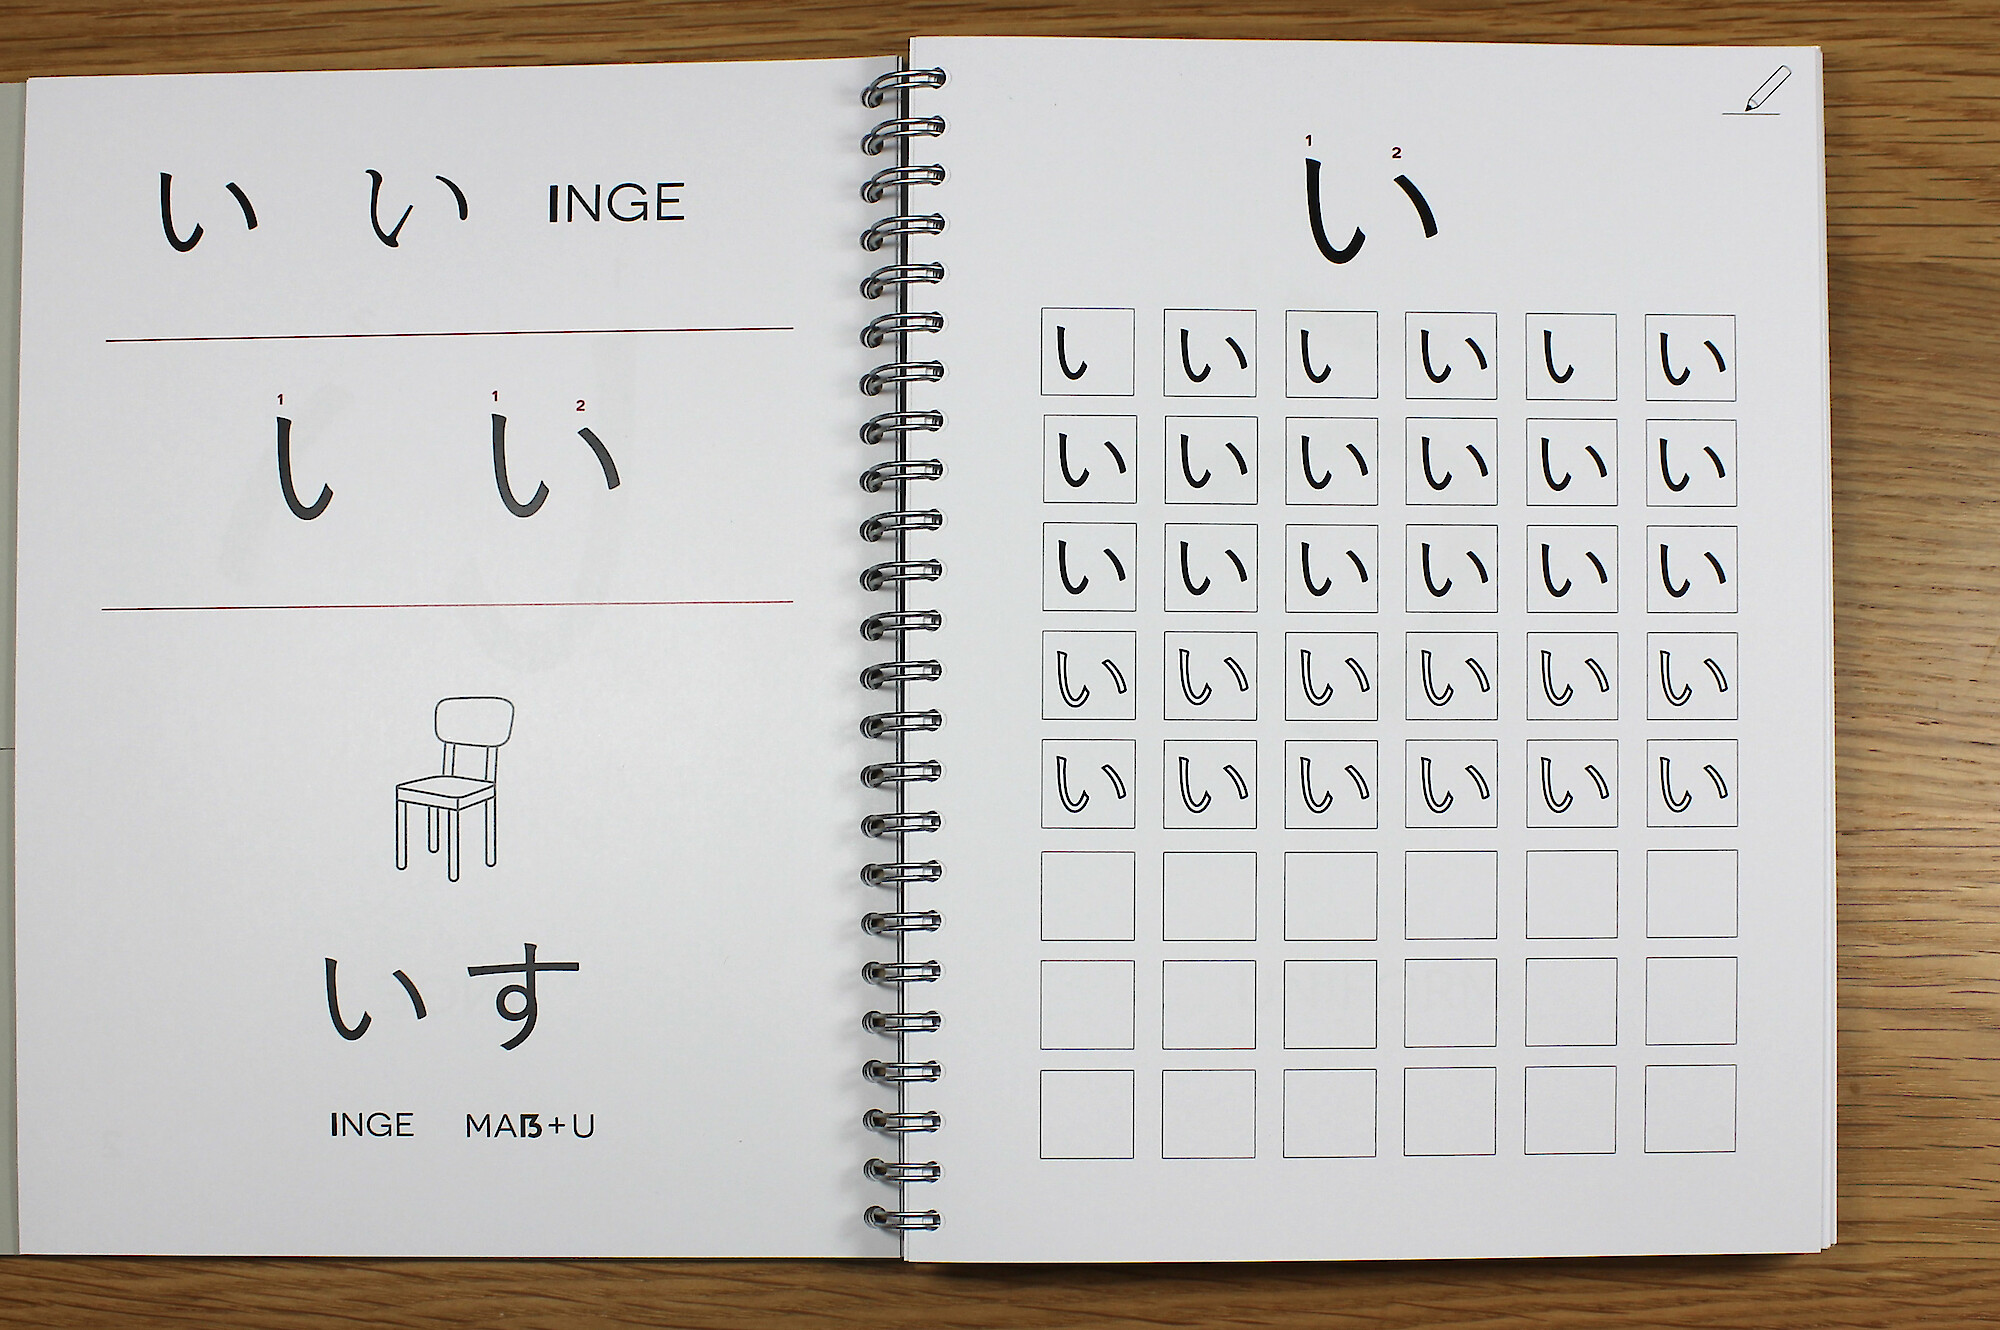 い い INGE
1 1 2
い い
いす
INGE MAß+U
1 2
い
し い し い し い
い い い い い い
い い い い い い
い い い い い い
い い い い い い